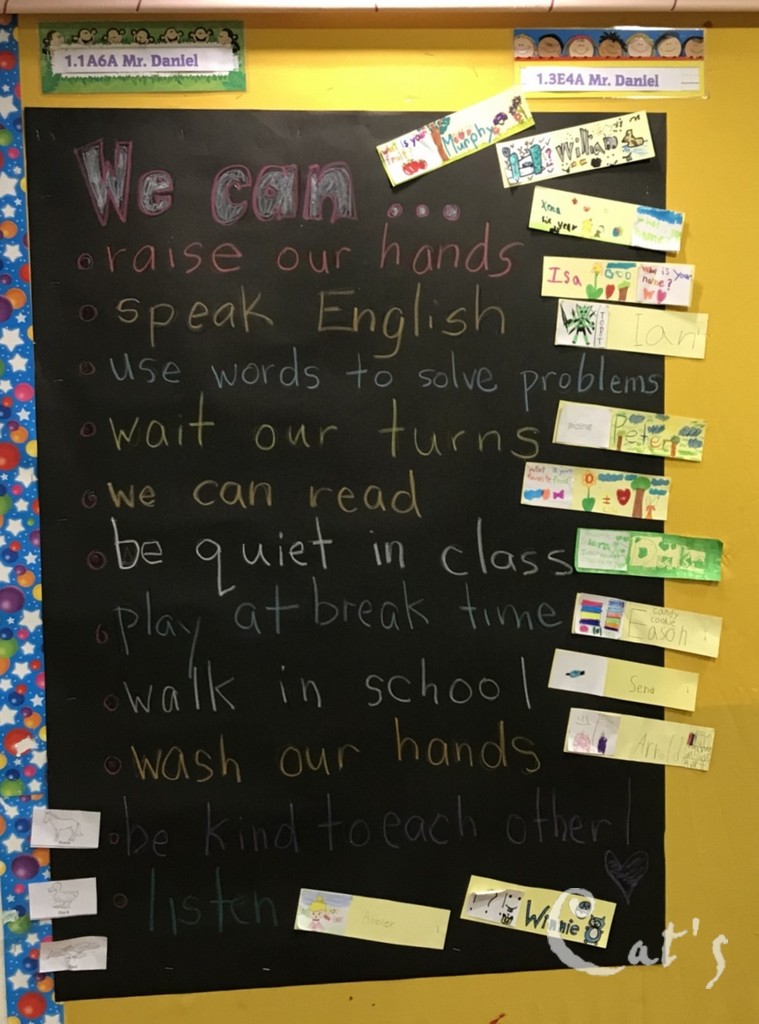 1.1A6A Mr. Daniel
1.3E4A Mr. Daniel
We can ...
what is your fruit?
Murphy
William
Isa
what is your name?
raise our hands
speak English
Ian
use words to solve problems
wait our turns
Peter
we can read
what is your favorite food
be quiet in class
play at break time
candy
cookie
Eason
walk in school
Sena
wash our hands
Arnold
be kind to each other!
listen
Winnie
Cat's